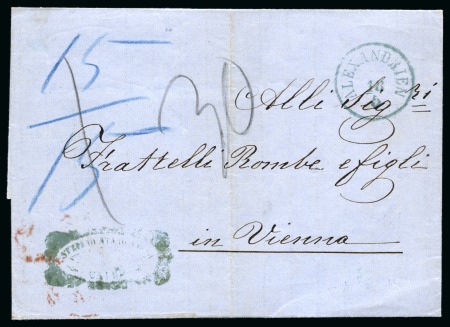 15
15
30
ALEXANDRIEN
Alli Sig.ri
Fratelli Rombe e figli
in Vienna